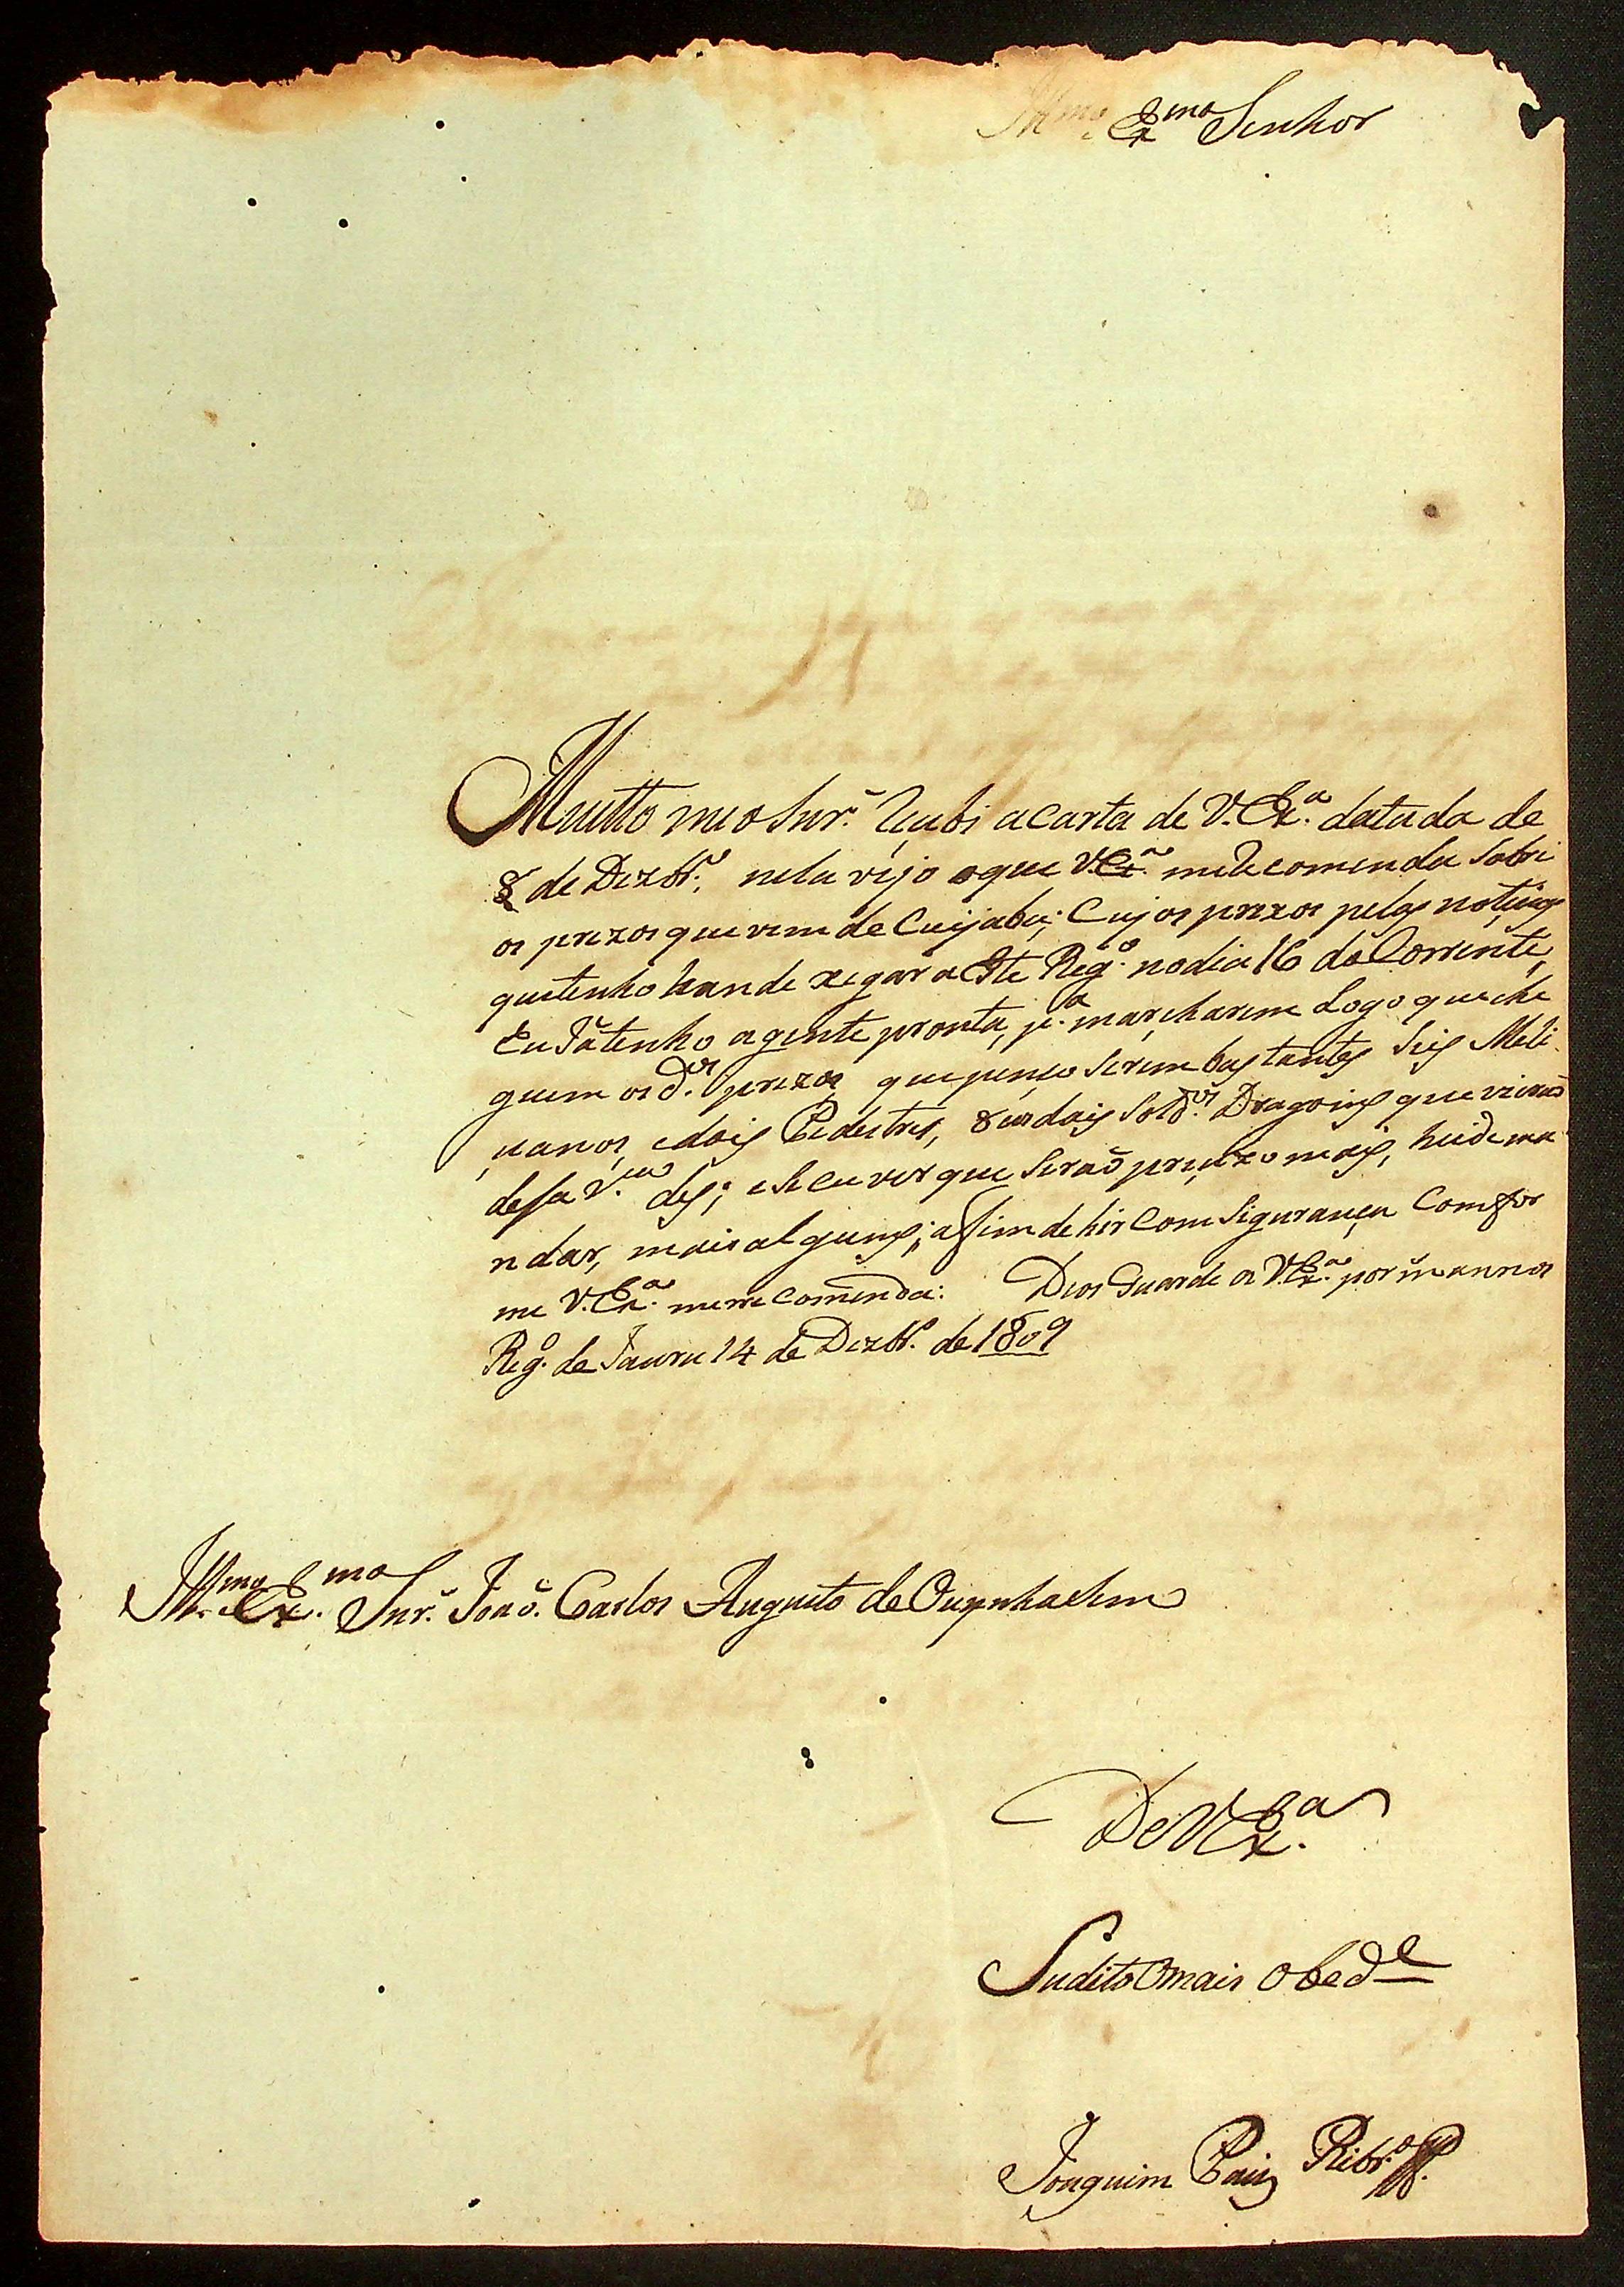 Illmo. Exmo Senhor
Muitto meo Snr. Reçubi a carta de V. Exa. datada de
8 de Dezbro., nela vejo oque V.Exa. me Recomenda sobri
os prezos que vem de Cuijabá; Cujos prezos pelas notiçias
que tenho hande xegar a Este Rego. nodia 16 do Corrente,
Eu Já tenho agente pronta, pa. marcharem Logo queche
guem os ds. prezos que penço serem bastantes seis Meli
cianos, e dois Pedestres, e dois Solds. Dragoins que vierão
desa Va. ; e se eu ver que serão preçizo mais, heide ma
ndar, mais alguns; afim de hir Com Siguransa Comfor
me V. Exa. merrecomenda. Deos Guarde a V.Exa. por ms. annos
Rego. de Jauru 14 de Dezbro. de 1809
Illmo. Exmo. Snr. João. Carlos Augusto de Oyenhaehm
De V Exa.
Sudito Omais obede
Joaquim Paiz Ribro.